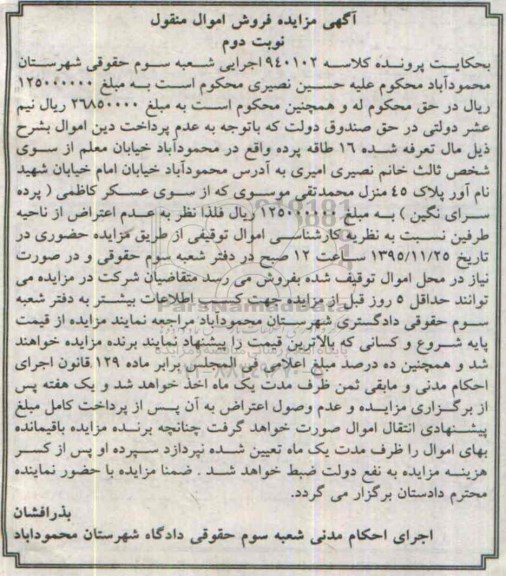 آگهی مزایده فروش اموال منقول
نوبت دوم
بحکایت پرونده کلاسه ۹۴۰۱۰۲ اجرایی شعبه سوم حقوقی شهرستان
محمودآباد محکوم علیه حسین نصیری محکوم است به مبلغ ۱۲۵۰۰۰۰۰۰
ریال در حق محکوم له و همچنین محکوم است به مبلغ ۲۶۸۵۰۰۰۰ ریال نیم
عشر دولتی در حق صندوق دولت که باتوجه به عدم پرداخت دین اموال بشرح
ذیل مال تعرفه شده ۱۶ طاقه پرده واقع در محمودآباد خیابان معلم از سوی
شخص ثالث خانم نصیری امیری به آدرس محمودآباد خیابان امام خیابان شهید
نام آور پلاک ۴۵ منزل محمدتقی موسوی که از سوی عسکر کاظمی ( پرده
سرای نگین ) به مبلغ ریال فلذا نظر به عدم اعتراض از ناحیه
طرفین نسبت به نظریه کارشناسی اموال توقیفی از طریق مزایده حضوری در
تاریخ ۱۳۹۵/۱۱/۲۵ ساعت ۱۲ صبح در دفتر شعبه سوم حقوقی و در صورت
نیاز در محل اموال توقیف شده بفروش می رسد متقاضیان شرکت در مزایده می
توانند حداقل ۵ روز قبل از مزایده جهت کسب اطلاعات بیشتر به دفتر شعبه
سوم حقوقی دادگستری شهرستان محمودآباد مراجعه نمایند مزایده از قیمت
پایه شروع و کسانی که بالاترین قیمت را پیشنهاد نمایند برنده مزایده خواهند
شد و همچنین ده درصد مبلغ اعلامی فی المجلس برابر ماده ۱۲۹ قانون اجرای
احکام مدنی و مابقی ثمن ظرف مدت یک ماه اخذ خواهد شد و یک هفته پس
از برگزاری مزایده و عدم وصول اعتراض به آن پس از پرداخت کامل مبلغ
پیشنهادی انتقال اموال صورت خواهد گرفت چنانچه برنده مزایده باقیمانده
بهای اموال را ظرف مدت یک ماه تعیین شده نپردازد سپرده او پس از کسر
هزینه مزایده به نفع دولت ضبط خواهد شد . ضمنا مزایده با حضور نماینده
محترم دادستان برگزار می گردد.
بذرافشان
اجرای احکام مدنی شعبه سوم حقوقی دادگاه شهرستان محموداباد
ParsNamadData